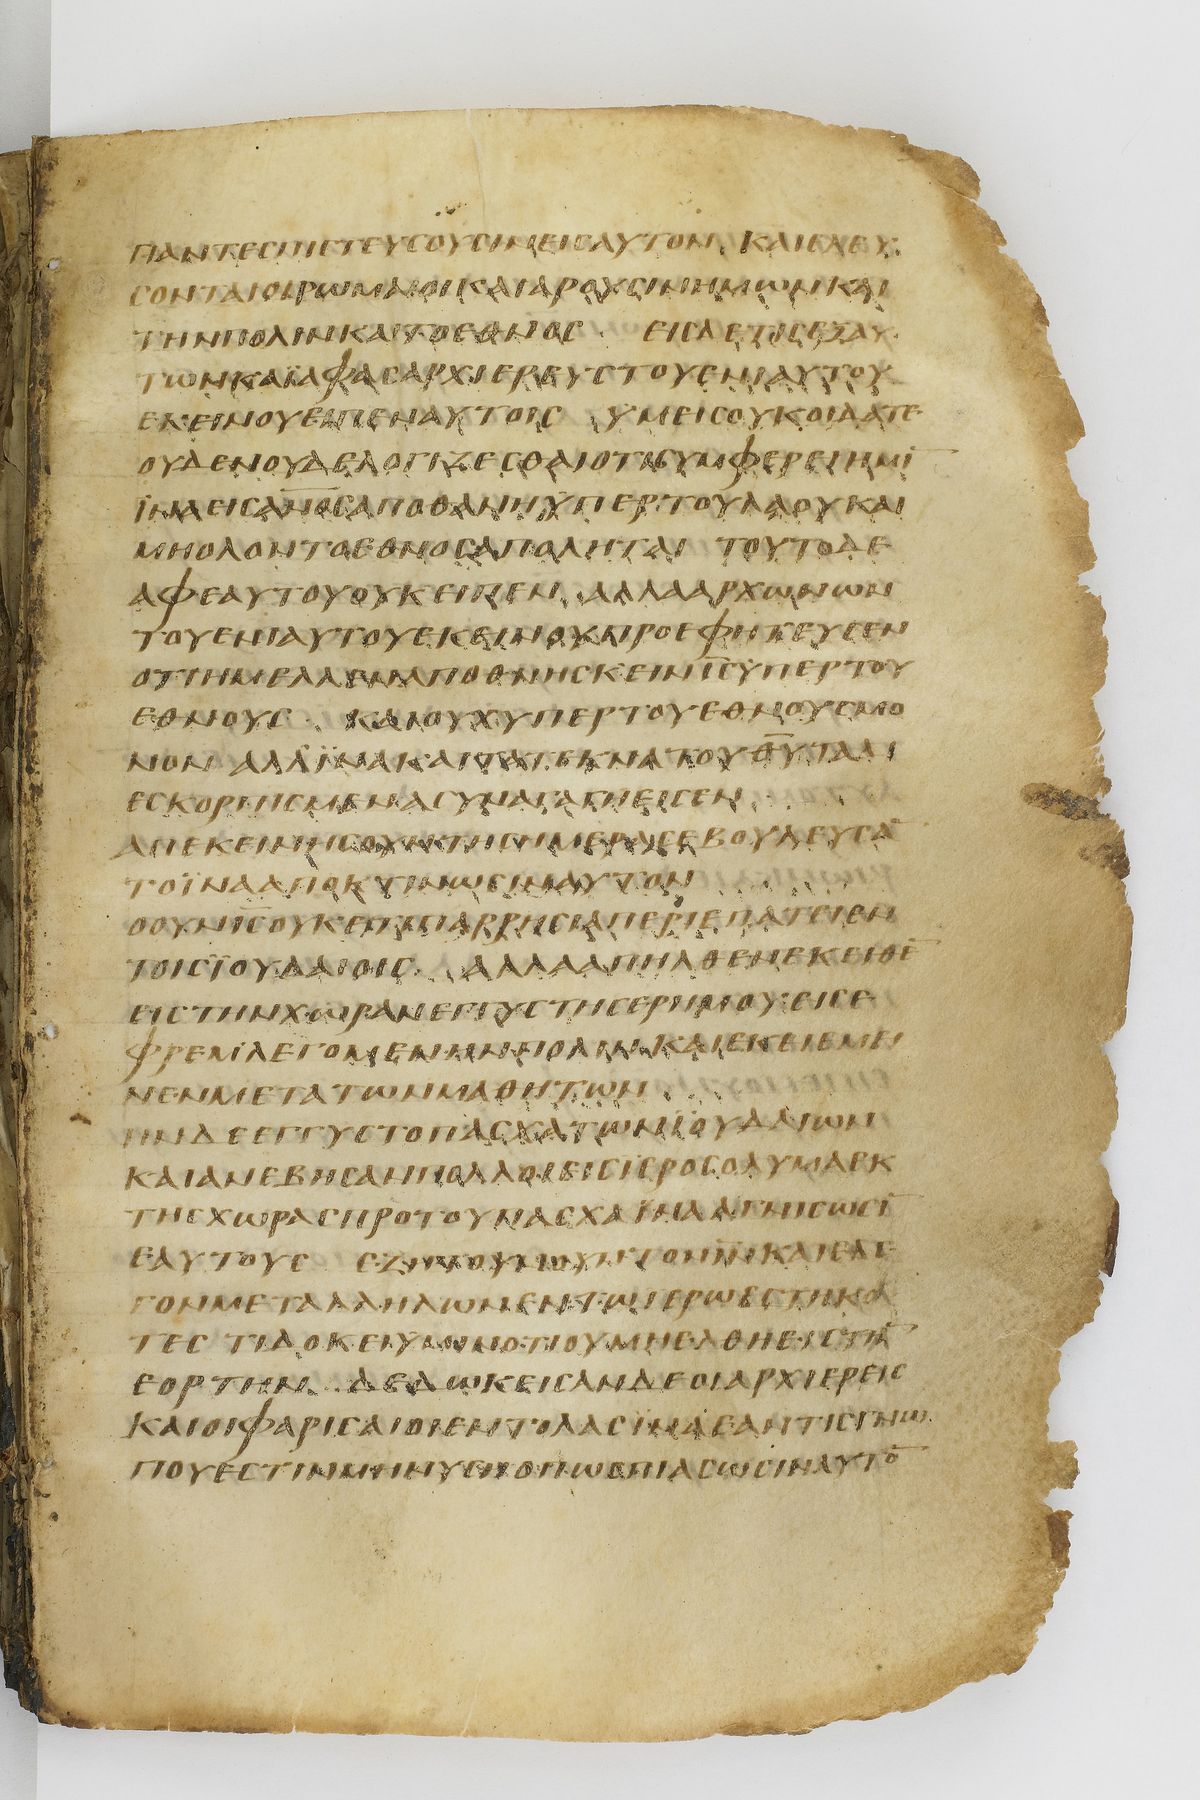 ΠΑΝΤΕСΠΙСΤΕΥСΟΥСΙΝΕΙСΑΥΤΟΝ ΚΑΙΕΛΕΥ
СΟΝΤΑΙΟΙΡΩΜΑΙΟΙΚΑΙΑΡΟΥСΙΝΗΜΩΝΚΑΙ
ΤΗΝΠΟΛΙΝΚΑΙΤΟΕΘΝΟС ΕΙСΔΕΤΙСΕΞΑΥ
ΤΩΝΚΑΪΑΦΑСΑΡΧΙΕΡΕΥСΤΟΥΕΝΙΑΥΤΟΥ
ΕΚΕΙΝΟΥΕΙΠΕΝΑΥΤΟΙС ΫΜΕΙСΟΥΚΟΙΔΑΤΕ
ΟΥΔΕΝΟΥΔΕΛΟΓΙΖΕСΘΑΙΟΤΙСΥΜΦΕΡΕΙΗΜΙ̅
ΪΝΑΕΙСΑΝ̅Ο̅СΑΠΟΘΑΝΗΫΠΕΡΤΟΥΛΑΟΥΚΑΙ
ΜΗΟΛΟΝΤΟΕΘΝΟСΑΠΟΛΗΤΑΙ ΤΟΥΤΟΔΕ
ΑΦΕΑΥΤΟΥΟΥΚΕΙΠΕΝ ΑΛΛΑΑΡΧΩΝΩΝ
ΤΟΥΕΝΙΑΥΤΟΥΕΚΕΙΝΟΥΕΠΡΟΕΦΗΤΕΥСΕΝ
ΟΤΙΗΜΕΛΛΕΝΑΠΟΘΝΗСΚΕΙΝΙ̅С̅ΥΠΕΡΤΟΥ
ΕΘΝΟΥС ΚΑΙΟΥΧΥΠΕΡΤΟΥΕΘΝΟΥСΜΟ
ΝΟΝ ΑΛΛΪΝΑΚΑΙΤΑΤΕΚΝΑΤΟΥΘ̅Υ̅ΤΑΔΙ
ΕСΚΟΡΠΙСΜΕΝΑСΥΝΑΓΑΓΗΕΙСΕΝ
ΑΠΕΚΕΙΝΗСΟΥΝΤΗСΗΜΕΡΑСΕΒΟΥΛΕΥСΑ̅
ΤΟΪΝΑΑΠΟΚΤΙΝΩСΙΝΑΥΤΟΝ
ΟΟΥΝΙ̅С̅ΟΥΚΕΤΙΠΑΡΡΗСΙΑΠΕΡΙΕΠΑΤΕΙΕΝ
ΤΟΙСΪΟΥΔΑΙΟΙС ΑΛΛΑΑΠΗΛΘΕΝΕΚΕΙΘΕ̅
ΕΙСΤΗΝΧΩΡΑΝΕΓΓΥСΤΗСΕΡΗΜΟΥ ΕΙСΕ
ΦΡΕΜΛΕΓΟΜΕΝΗΝΠΟΛΙΝ ΚΑΙΕΚΕΙΕΜΕΙ
ΝΕΝΜΕΤΑΤΩΝΜΑΘΗΤΩΝ
ΗΝΔΕΕΓΓΥСΤΟΠΑСΧΑΤΩΝΪΟΥΔΑΙΩΝ
ΚΑΙΑΝΕΒΗСΑΝΠΟΛΛΟΙΕΙСΙΕΡΟСΟΛΥΜΑΕΚ
ΤΗСΧΩΡΑСΠΡΟΤΟΥΠΑСΧΑΪΝΑΑΓΝΙСΩСΙ̅
ΕΑΥΤΟΥС ΕΖΗΤΟΥΝΟΥΝΤΟΝΙ̅Ν̅ΚΑΙΕΛΕ
ΓΟΝΜΕΤΑΛΛΗΛΩΝΕΝΤΩΙΕΡΩΕСΤΗΚΟ
ΤΕС ΤΙΔΟΚΕΙΥΜΙΝΟΤΙΟΥΜΗΕΛΘΗΕΙСΤΗ̅
ΕΟΡΤΗΝ ΔΕΔΩΚΕΙСΑΝΔΕΟΙΑΡΧΙΕΡΕΙС
ΚΑΙΟΙΦΑΡΙСΑΙΟΙΕΝΤΟΛΑСΪΝΑΕΑΝΤΙСΓΝΩ
ΠΟΥΕСΤΙΝΜΗΝΥСΗΟΠΩСΠΙΑСΩСΙΝΑΥΤΟ̅